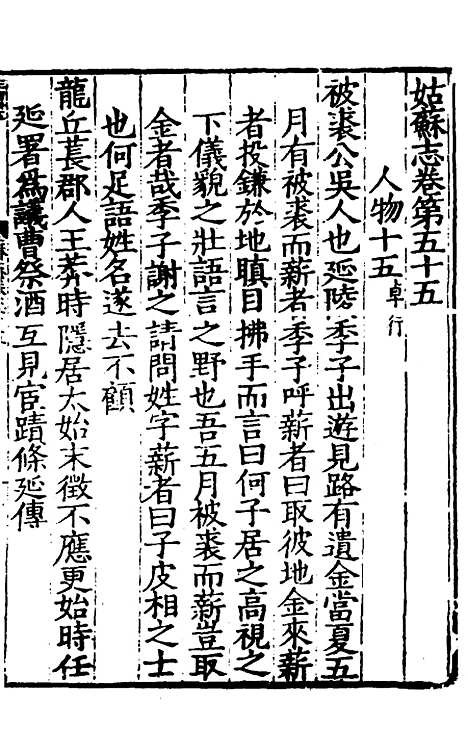 姑蘇志卷第五十五
人物十五 卓行
被裘公吳人也延陵季子出遊見路有遺金當夏五
月有被裘而薪者季子呼薪者曰取彼地金來薪
者投鎌於地瞋目拂手而言曰何子居之高視之
下儀貌之壯語言之野也吾五月被裘而薪豈取
金者哉季子謝之請問姓字薪者曰子皮相之士
也何足語姓名遂去不顧
龍丘萇郡人王莽時隱居太始末徵不應更始時任
延署爲議曹祭酒互見官蹟條延傳